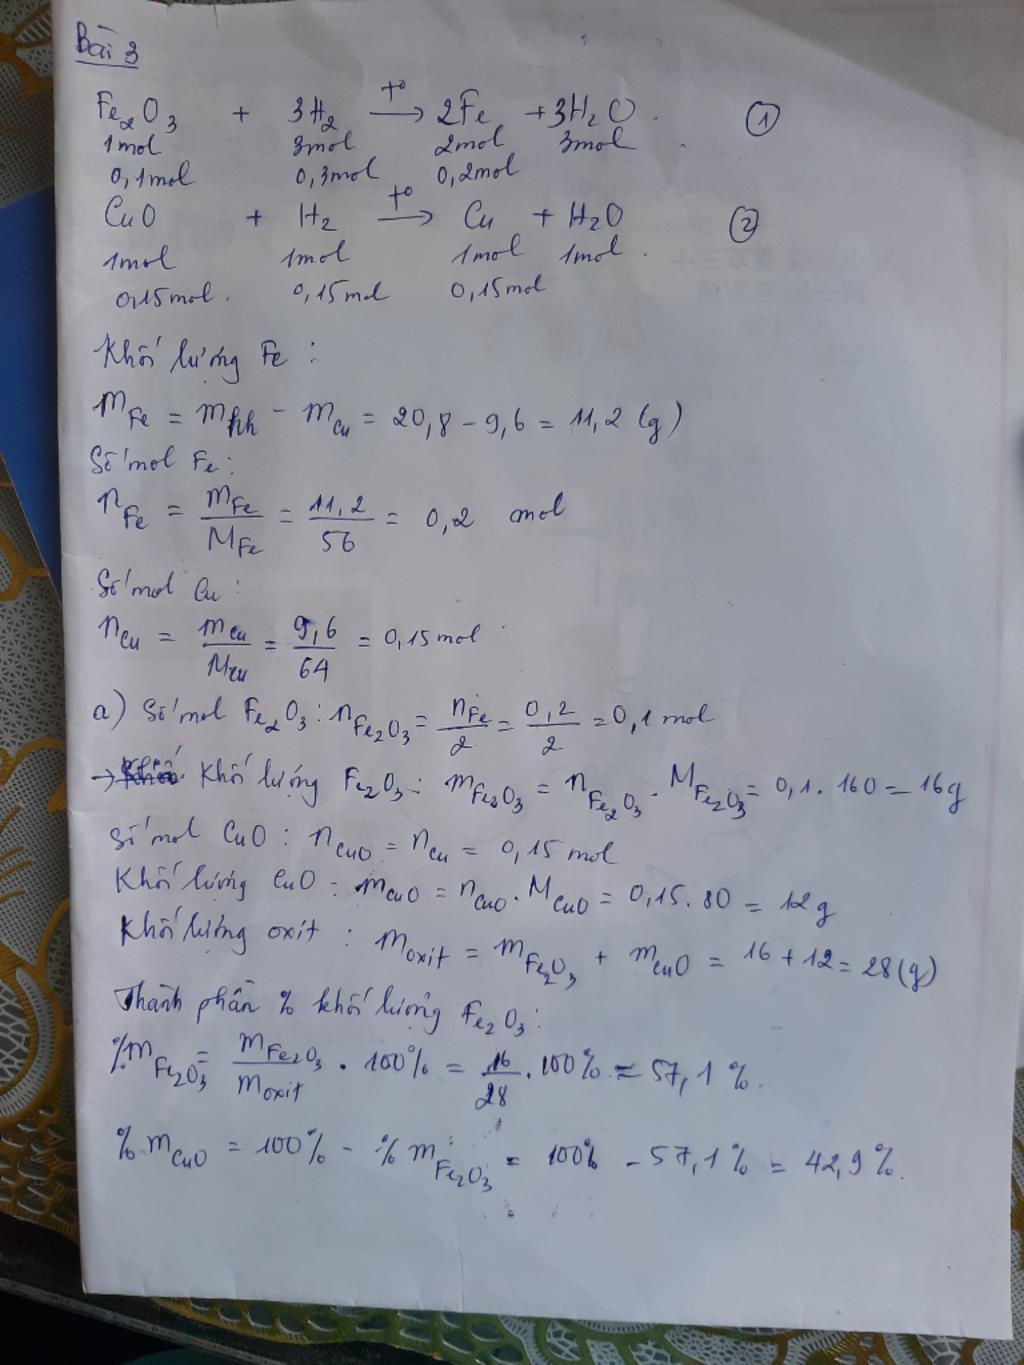 Bài 3
Fe₂O₃ + 3H₂ —t°→ 2Fe + 3H₂O. ①
1mol 3mol 2mol 3mol
0,1mol 0,3mol 0,2mol
CuO + H₂ —t°→ Cu + H₂O ②
1mol 1mol 1mol 1mol.
0,15mol. 0,15mol 0,15mol
Khối lượng Fe :
m_Fe = m_hh - m_Cu = 20,8 - 9,6 = 11,2 (g)
Số mol Fe:
n_Fe = m_Fe/M_Fe = 11,2/56 = 0,2 mol
Số mol Cu:
n_Cu = m_Cu/M_Cu = 9,6/64 = 0,15 mol
a) Số mol Fe₂O₃: n_Fe₂O₃ = n_Fe/2 = 0,2/2 = 0,1 mol
→ Khối lượng Fe₂O₃: m_Fe₂O₃ = n_Fe₂O₃ . M_Fe₂O₃ = 0,1. 160 = 16g
Số mol CuO : n_CuO = n_Cu = 0,15 mol
Khối lượng CuO : m_CuO = n_CuO . M_CuO = 0,15. 80 = 12g
Khối lượng oxit : m_oxit = m_Fe₂O₃ + m_CuO = 16 + 12 = 28 (g)
Thành phần % khối lượng Fe₂O₃:
%m_Fe₂O₃ = m_Fe₂O₃/m_oxit . 100% = 16/28 . 100% = 57,1 %.
% m_CuO = 100% - % m_Fe₂O₃ = 100% - 57,1 % = 42,9 %.